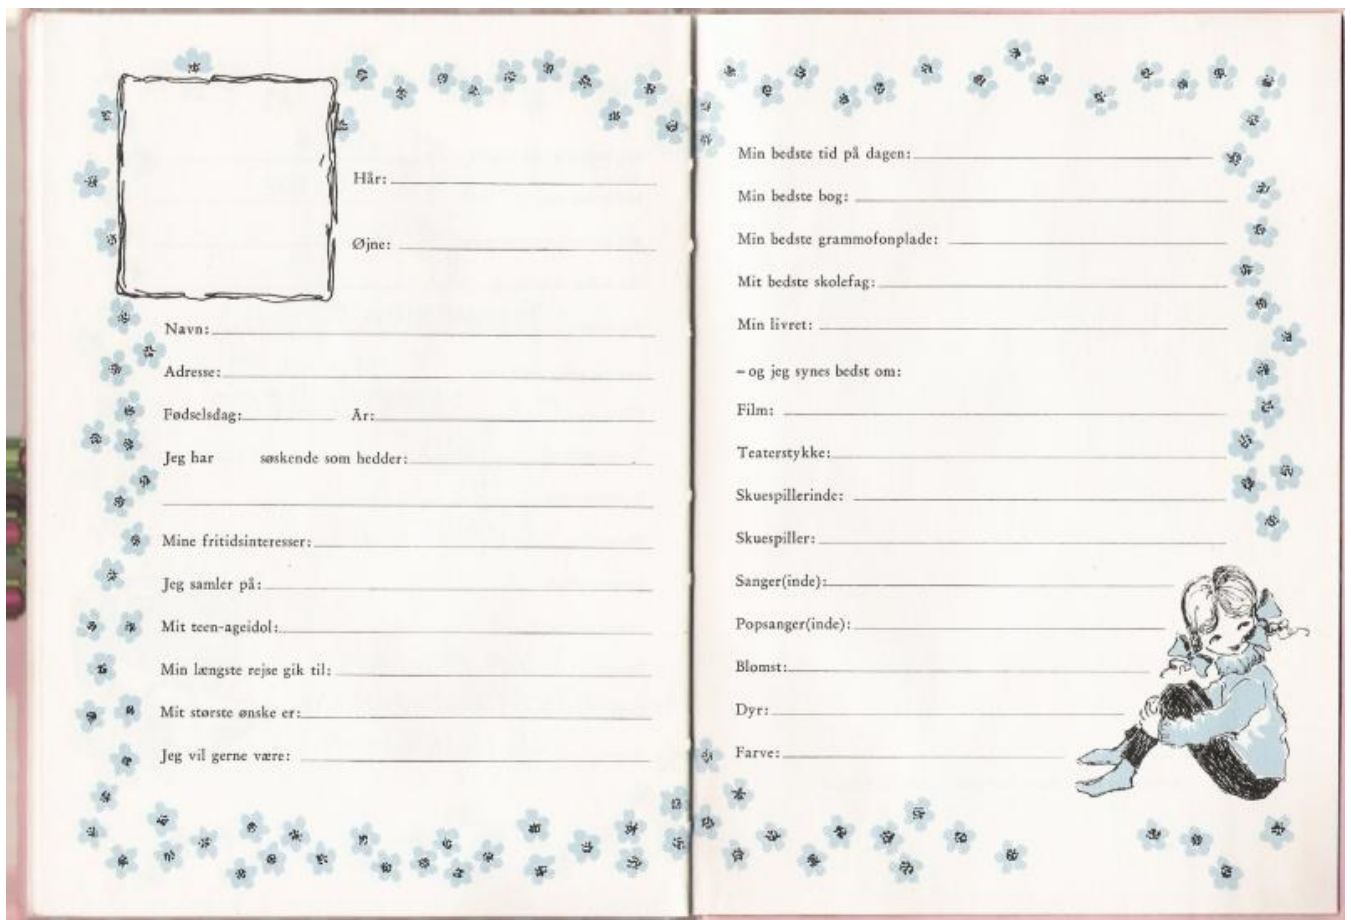 Hår:
Øjne:
Navn:
Adresse:
Fødselsdag: År:
Jeg har søskende som hedder:
Mine fritidsinteresser:
Jeg samler på:
Mit teen-ageidol:
Min længste rejse gik til:
Mit største ønske er:
Jeg vil gerne være:
Min bedste tid på dagen:
Min bedste bog:
Min bedste grammofonplade:
Mit bedste skolefag:
Min livret:
– og jeg synes bedst om:
Film:
Teaterstykke:
Skuespillerinde:
Skuespiller:
Sanger(inde):
Popsanger(inde):
Blomst:
Dyr:
Farve: